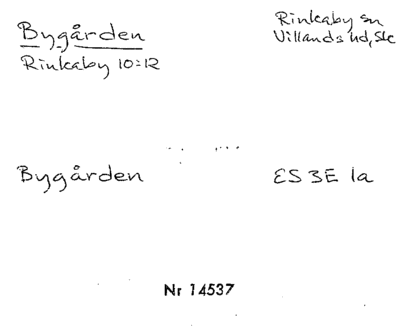 Bygården
Rinkaby sn
Villands hd, Sk
Rinkaby 10:12
Bygården
ES 3E 1a
Nr 14537